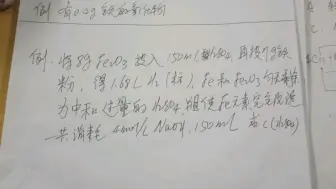 例 有0.2g 铁的氧化物
例. 将8g Fe₂O₃ 投入 150ml H₂SO₄, 再投7g铁
粉, 得 1.68L H₂ (标), Fe和Fe₂O₃ 均无剩余
为中和过量的 H₂SO₄, 且使Fe元素完全沉淀
共消耗 4mol/L NaOH, 150ml 求 C(H₂SO₄)
A
C